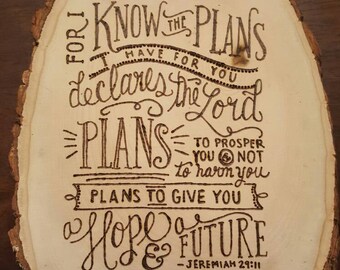 FOR I KNOW THE PLANS
I HAVE FOR YOU
declares the Lord
PLANS TO PROSPER
YOU & NOT
to harm you
PLANS TO GIVE YOU
a Hope & a FUTURE
- JEREMIAH 29:11